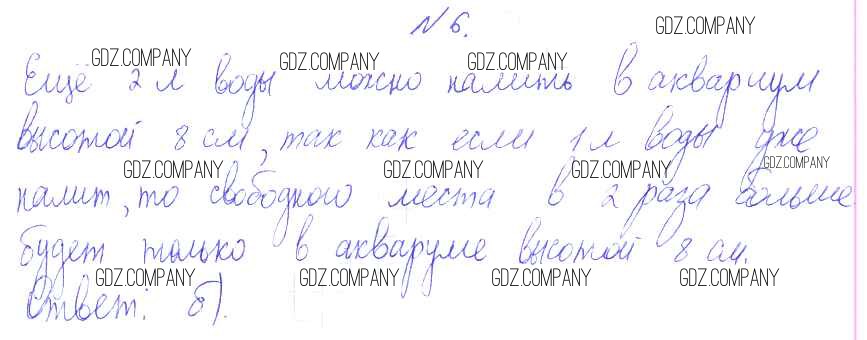 № 6.
Ещё 2 л воды можно налить в аквариум
высотой 8 см, так как если 1 л воды уже
налит, то свободного места в 2 раза больше
будет только в акваруме высотой 8 см.
Ответ: б).
GDZ.COMPANY
GDZ.COMPANY
GDZ.COMPANY
GDZ.COMPANY
GDZ.COMPANY
GDZ.COMPANY
GDZ.COMPANY
GDZ.COMPANY
GDZ.COMPANY
GDZ.COMPANY
GDZ.COMPANY
GDZ.COMPANY